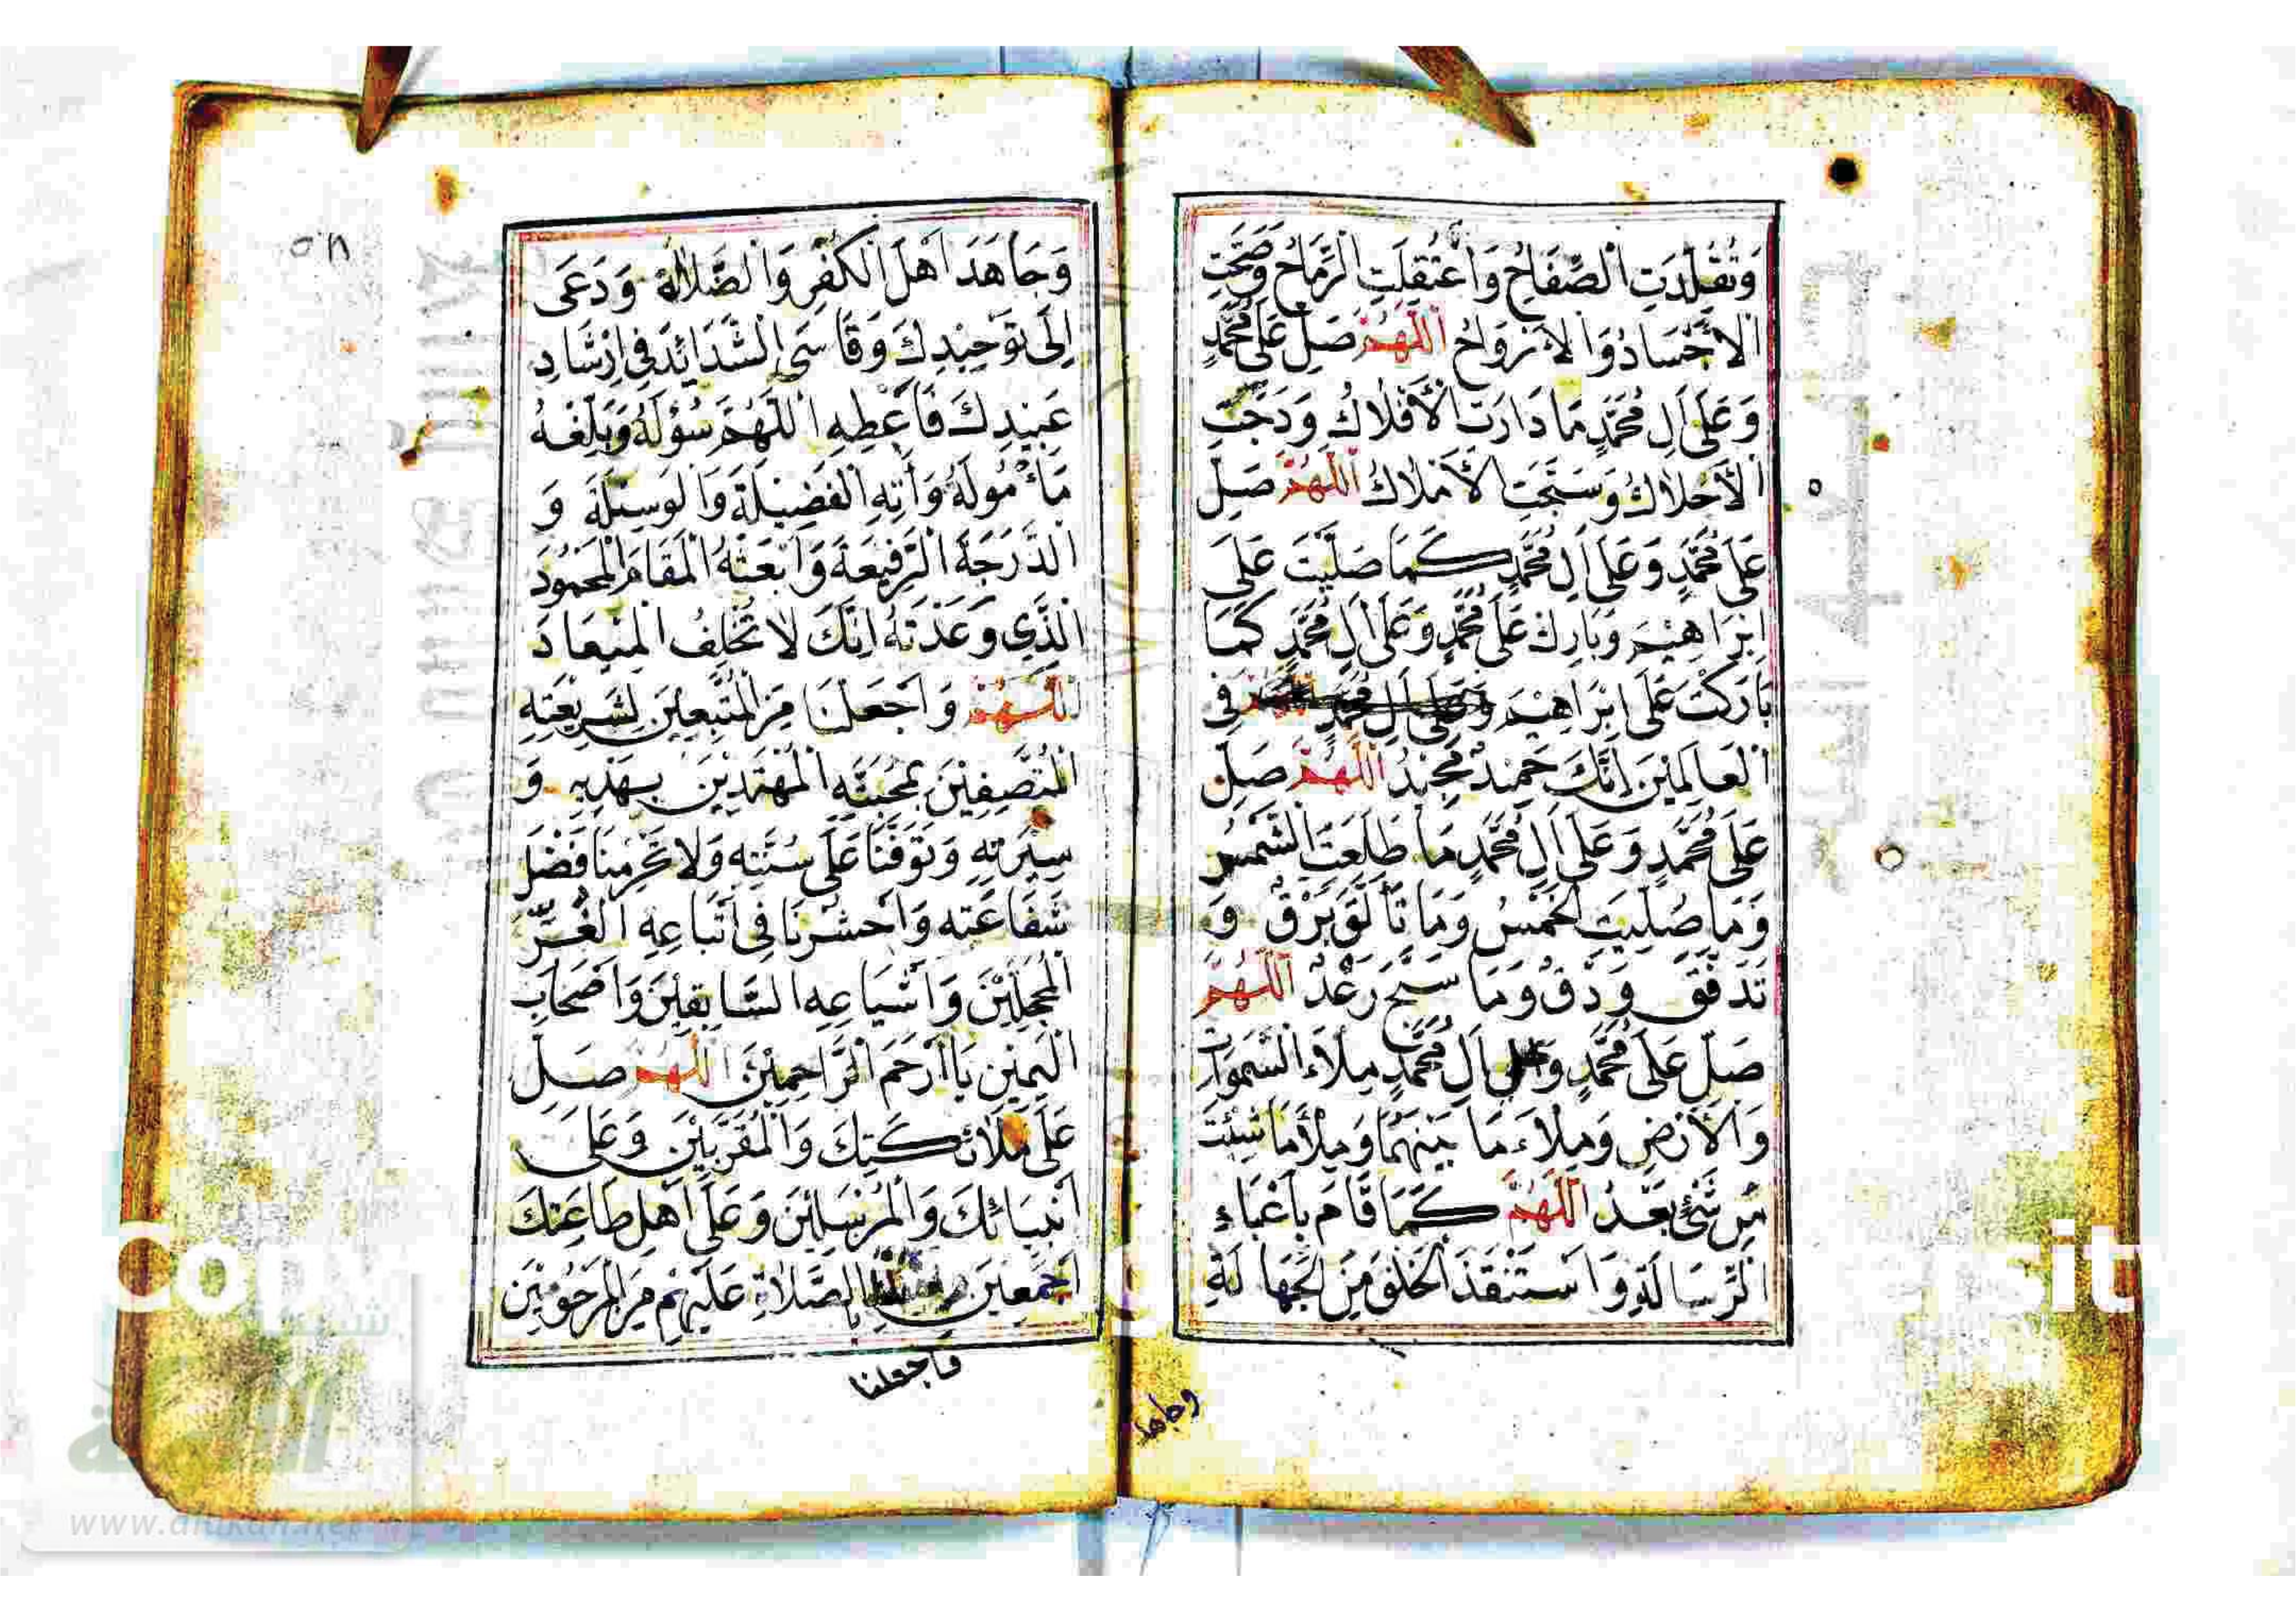 وَتُقُلِّدَتِ الصِّفَاحُ وَاعْتُقِلَتِ الرِّمَاحُ وَصَحَّتِ
الأَجْسَادُ وَالأَرْوَاحُ اَللّٰهُمَّ صَلِّ عَلَى مُحَمَّدٍ
وَعَلَى اَلِ مُحَمَّدٍ مَا دَارَتِ الأَفْلَاكُ وَدَجَتِ
الأَحْلَاكُ وَسَبَّحَتِ الأَمْلَاكُ اَللّٰهُمَّ صَلِّ
عَلَى مُحَمَّدٍ وَعَلَى اَلِ مُحَمَّدٍ كَمَا صَلَّيْتَ عَلَى
اِبْرَاهِيْمَ وَبَارِكْ عَلَى مُحَمَّدٍ وَعَلَى اَلِ مُحَمَّدٍ كَمَا
بَارَكْتَ عَلَى اِبْرَاهِيْمَ وَعَلَى اَلِ مُحَمَّدٍ فِي
الْعَالَمِيْنَ اِنَّكَ حَمِيْدٌ مَجِيْدٌ اَللّٰهُمَّ صَلِّ
عَلَى مُحَمَّدٍ وَعَلَى اَلِ مُحَمَّدٍ مَا طَلَعَتِ الشَّمْسُ
وَمَا صُلِّيَتِ الْخَمْسُ وَمَا تَأَلَّقَ بَرْقٌ وَ
تَدَفَّقَ وَدْقٌ وَمَا سَبَّحَ رَعْدٌ اَللّٰهُمَّ
صَلِّ عَلَى مُحَمَّدٍ وَعَلَى اَلِ مُحَمَّدٍ مِلْاَءَ السَّمٰوَاتِ
وَالأَرْضِ وَمِلْاَءَ مَا بَيْنَهُمَا وَمِلْأَ مَا شِئْتَ
مِنْ شَيْئٍ بَعْدُ اَللّٰهُمَّ كَمَا قَامَ بِأَعْبَاءِ
الرِّسَالَةِ وَاسْتَنْقَذَ الْخَلْقَ مِنَ الْجَهَالَةِ
وجاهد
٥٨
وَجَاهَدَ اَهْلَ الْكُفْرِ وَالضَّلَالَةِ وَدَعَى
اِلَى تَوْحِيْدِكَ وَقَاسَى الشَّدَائِدَ فِي اِرْشَادِ
عَبِيْدِكَ فَاَعْطِهِ اللّٰهُمَّ سُؤْلَهُ وَبَلِّغْهُ
مَأْمُولَهُ وَاٰتِهِ الْفَضِيْلَةَ وَالْوَسِيْلَةَ وَ
الدَّرَجَةَ الرَّفِيْعَةَ وَابْعَثْهُ الْمَقَامَ الْمَحْمُودَ
الَّذِي وَعَدْتَهُ اِنَّكَ لَا تُخْلِفُ الْمِيْعَادَ
اَللّٰهُمَّ وَاجْعَلْنَا مِنَ الْمُتَّبِعِيْنَ لِشَرِيْعَتِهِ
الْمُتَّصِفِيْنَ بِمَحَبَّتِهِ الْمُهْتَدِيْنَ بِهَدْيِهِ وَ
سِيْرَتِهِ وَتَوَفَّنَا عَلَى سُنَّتِهِ وَلَا تَحْرِمْنَا فَضْلَ
شَفَاعَتِهِ وَاحْشُرْنَا فِي اَتْبَاعِهِ الْغُرِّ
الْمُحَجَّلِيْنَ وَاَشْيَاعِهِ السَّابِقِيْنَ وَاَصْحَابِ
الْيَمِيْنِ يَا اَرْحَمَ الرَّاحِمِيْنَ اَللّٰهُمَّ صَلِّ
عَلَى مَلَائِكَتِكَ وَالْمُقَرَّبِيْنَ وَعَلَى
اَنْبِيَائِكَ وَالْمُرْسَلِيْنَ وَعَلَى اَهْلِ طَاعَتِكَ
اَجْمَعِيْنَ بِالصَّلَاةِ عَلَيْهِمْ مِنَ الْمَرْحُومِيْنَ
واجعلنا
www.alukah.net